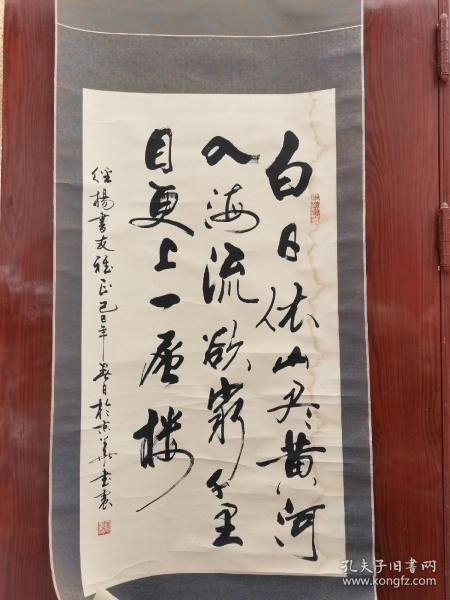 白日依山尽黄河
入海流欲穷千里
目更上一层楼
经杨书友雅正己巳年春日于京华书裹
孔夫子旧书网
www.kongfz.com